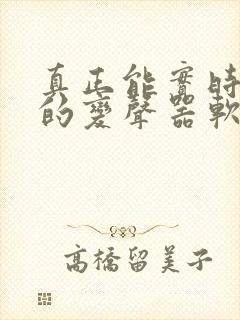 真正能實時
的變聲器軟
高橋留美子